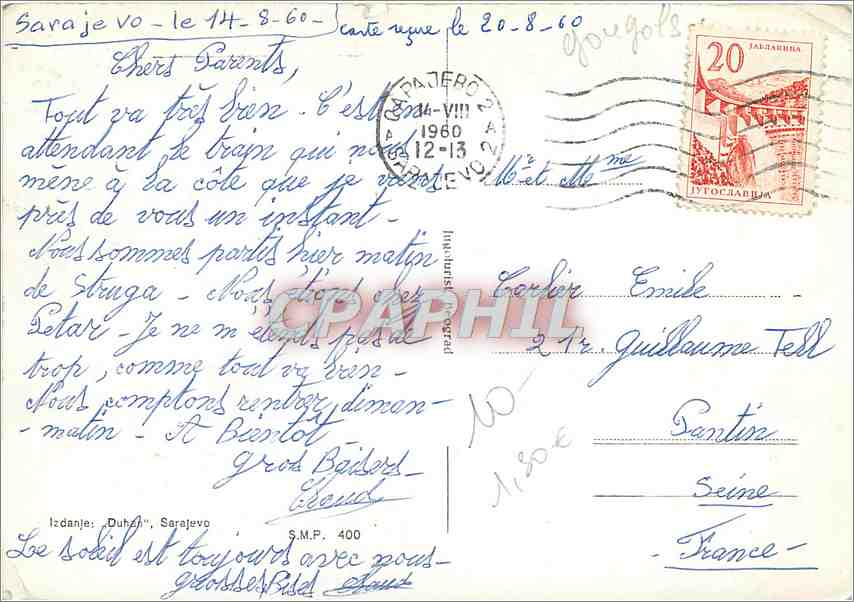 Sarajevo - le 14-8-60-
carte reçue le 20-8-60
Chers Parents,
Tout va très bien. C'est en
attendant le train qui nous
mène à la côte que je viens
près de vous un instant-
Nous sommes partis hier matin
de Struga - Nous étions chez
Petar - Je ne m'étends pas
trop, comme tout va bien-
Nous comptons rentrer diman-
-matin - A Bientôt
gros Baisers-
Claud
Izdanje: „Duhan", Sarajevo
S.M.P. 400
Le soleil est toujours avec nous-
grosses Bises Claud
Jugoturist Beograd
САРАЈЕВО 2
14-VIII
1960
12-13
SARAJEVO 2
20
ЈАБЛАНИЦА
ЈУГОСЛАВИЈА
Mr et Mme
Corbier Emile
21 r. Guillaume Tell
Pantin
Seine
-France-
10-
1,80€
CPAPHIL